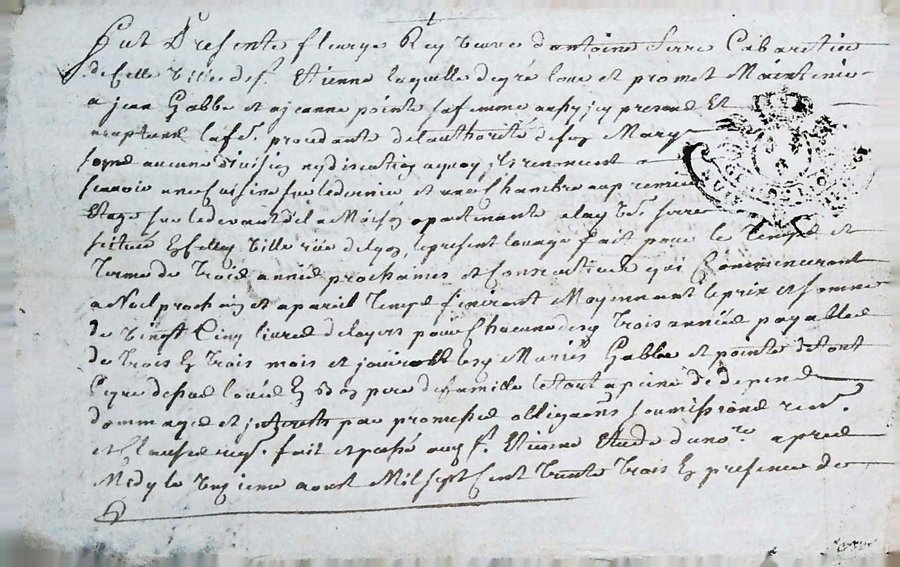 fut presente fleurye Rey veuve d'antoine serre Cabaretier
de cette ville de st Etienne laquelle de gré loue et promet Maintenir
a jean Gabba et a jeanne pointe sa femme aussy icy presens Et
acceptans lad. procedant de l'authorité de son Mary
sans aucune division ny discution a quoy ils renoncent a
scavoir une cuisine sur le derrier et une Chambre au premier
Etage sur le devant de la Maison apartenante a lad ve serre
scituée en cettes ville rüe le present louage fait pour le temps et
terme de trois années prochaines et Consecutives qui Commenceront
a Noel prochain et a pareil temps finiront Moyennant le prix et somme
de vingt Cinq livres de loyers pour Chacune desd trois années payables
de trois en trois mois et jouiront lesd Mariés Gabba et pointe de tout
Ce que dessus loués en bons pere de famille le tout a peine de depens
dommages et interests par promesses obligaons soumissions ren.
et Clauses fait et passé aud st Etienne Etude du no.re apres
Midy le aoust Mil sept Cent trente trois En presence de